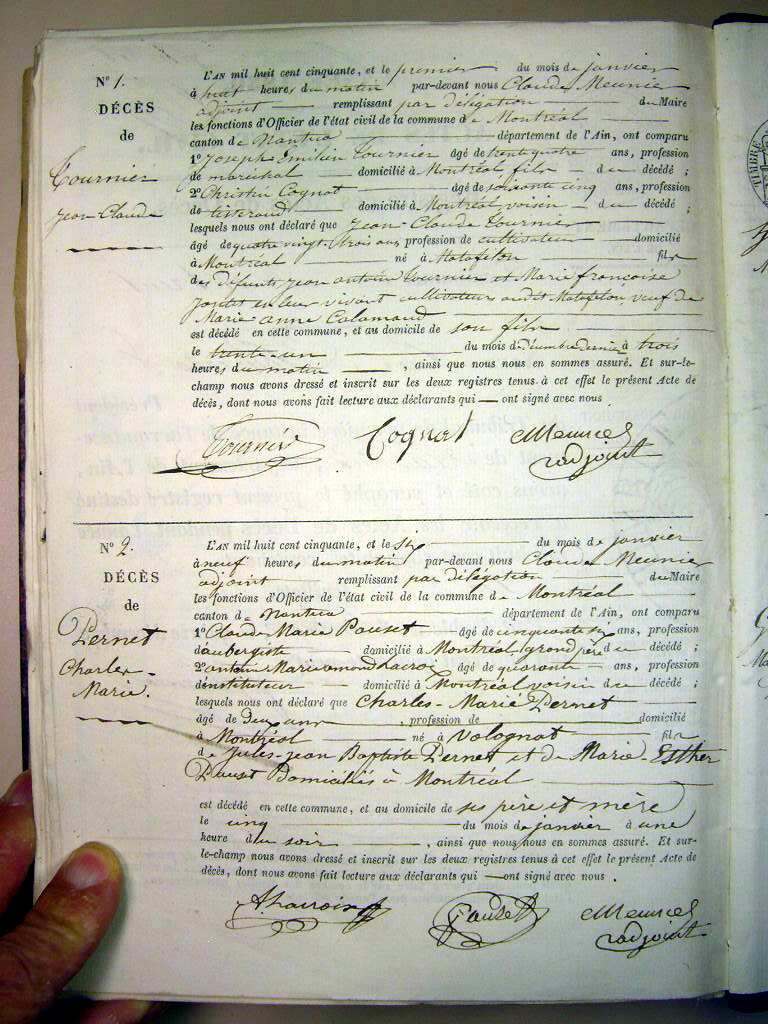 N° 1.
DÉCÈS
de
Tournier
Jean-Claude
L'AN mil huit cent cinquante, et le premier du mois de janvier
à huit heures du matin par-devant nous Claude Meunier
adjoint remplissant par délégation du Maire
les fonctions d'Officier de l'état civil de la commune de Montréal
canton de Nantua département de l'Ain, ont comparu
1° Joseph Emilien Tournier âgé de trente quatre ans, profession
de marechal domicilié à Montréal fils du décédé ;
2° Christin Cognat âgé de soixante cinq ans, profession
de tisserand domicilié à Montréal voisin du décédé ;
lesquels nous ont déclaré que Jean Claude Tournier
âgé de quatre vingt trois ans profession de cultivateur domicilié
à Montréal né à Matafelon fils
des défunts Jean antoine Tournier et Marie francoise
en leur vivant cultivateurs audit Matafelon, veuf de
Marie anne Calamand
est décédé en cette commune, et au domicile de son fils
le trente-un du mois de décembre dernier à trois
heures du matin , ainsi que nous nous en sommes assuré. Et sur-le-
champ nous avons dressé et inscrit sur les deux registres tenus à cet effet le présent Acte de
décès, dont nous avons fait lecture aux déclarants qui — ont signé avec nous
Tournier Cognat Meunier
adjoint
N° 2.
DÉCÈS
de
Pernet
Charles-
Marie.
L'AN mil huit cent cinquante, et le six du mois de janvier
à neuf heures du matin par-devant nous Claude Meunier
adjoint remplissant par délégation du Maire
les fonctions d'Officier de l'état civil de la commune de Montréal
canton de Nantua département de l'Ain, ont comparu
1° Claude Marie Pauset âgé de cinquante six ans, profession
d'aubergiste domicilié à Montréal grand père du décédé ;
2° antoine Marie amond Lacroix âgé de quarante ans, profession
d'instituteur domicilié à Montréal voisin du décédé ;
lesquels nous ont déclaré que Charles-Marie Pernet
âgé de deux ans , profession de domicilié
à Montréal né à Volognat fils
de Jules-Jean Baptiste Pernet et de Marie-Esther
Pauset Domiciliés à Montréal
est décédé en cette commune, et au domicile de ses père et mère
le cinq du mois de janvier à une
heure du soir , ainsi que nous nous en sommes assuré. Et sur-
le-champ nous avons dressé et inscrit sur les deux registres tenus à cet effet le présent Acte de
décès, dont nous avons fait lecture aux déclarants qui — ont signé avec nous .
A. Lacroix Pauset Meunier
adjoint
TIMBRE